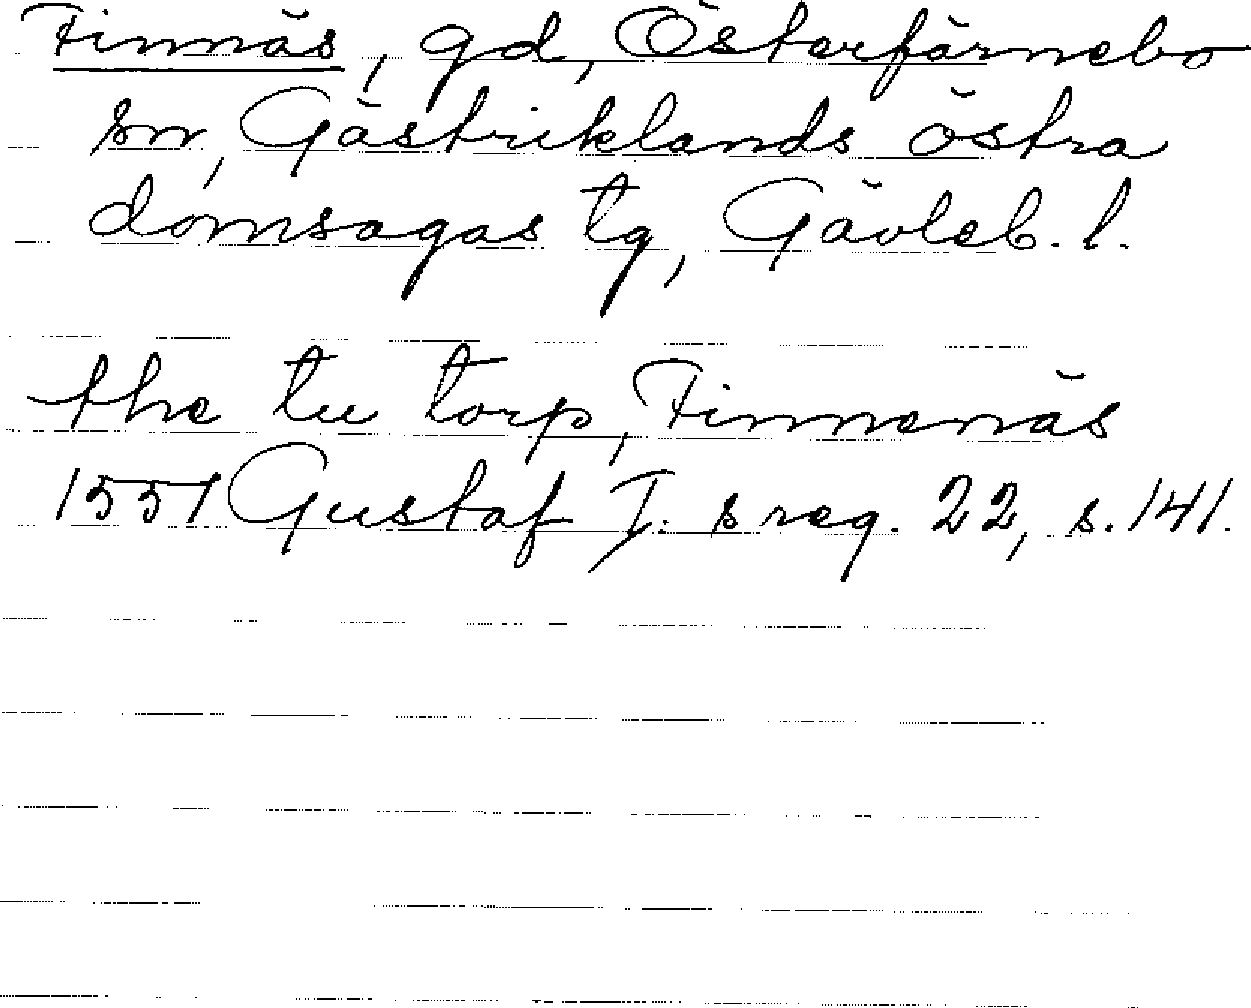 Finnäs, gd, Österfärnebo
sn, Gästriklands östra
domsagas tg, Gävleb. l.
the tu torp, Finnenäs
1557 Gustaf I:s reg. 22, s. 141.